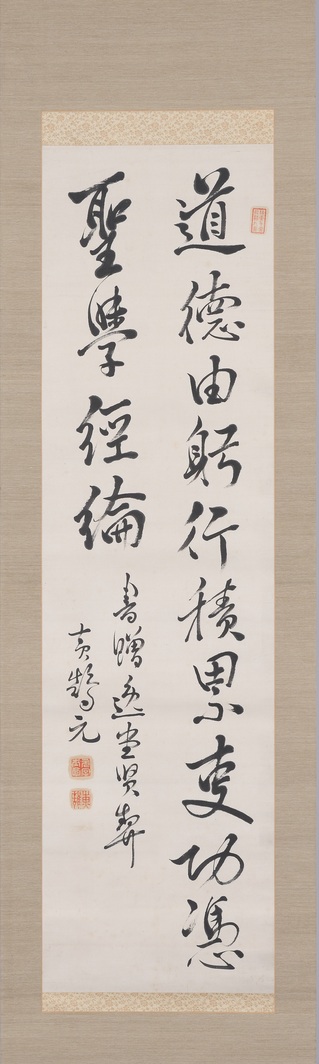 道德由躬行積累叓功憑
聖學經綸
書贈逸堂賢契
元